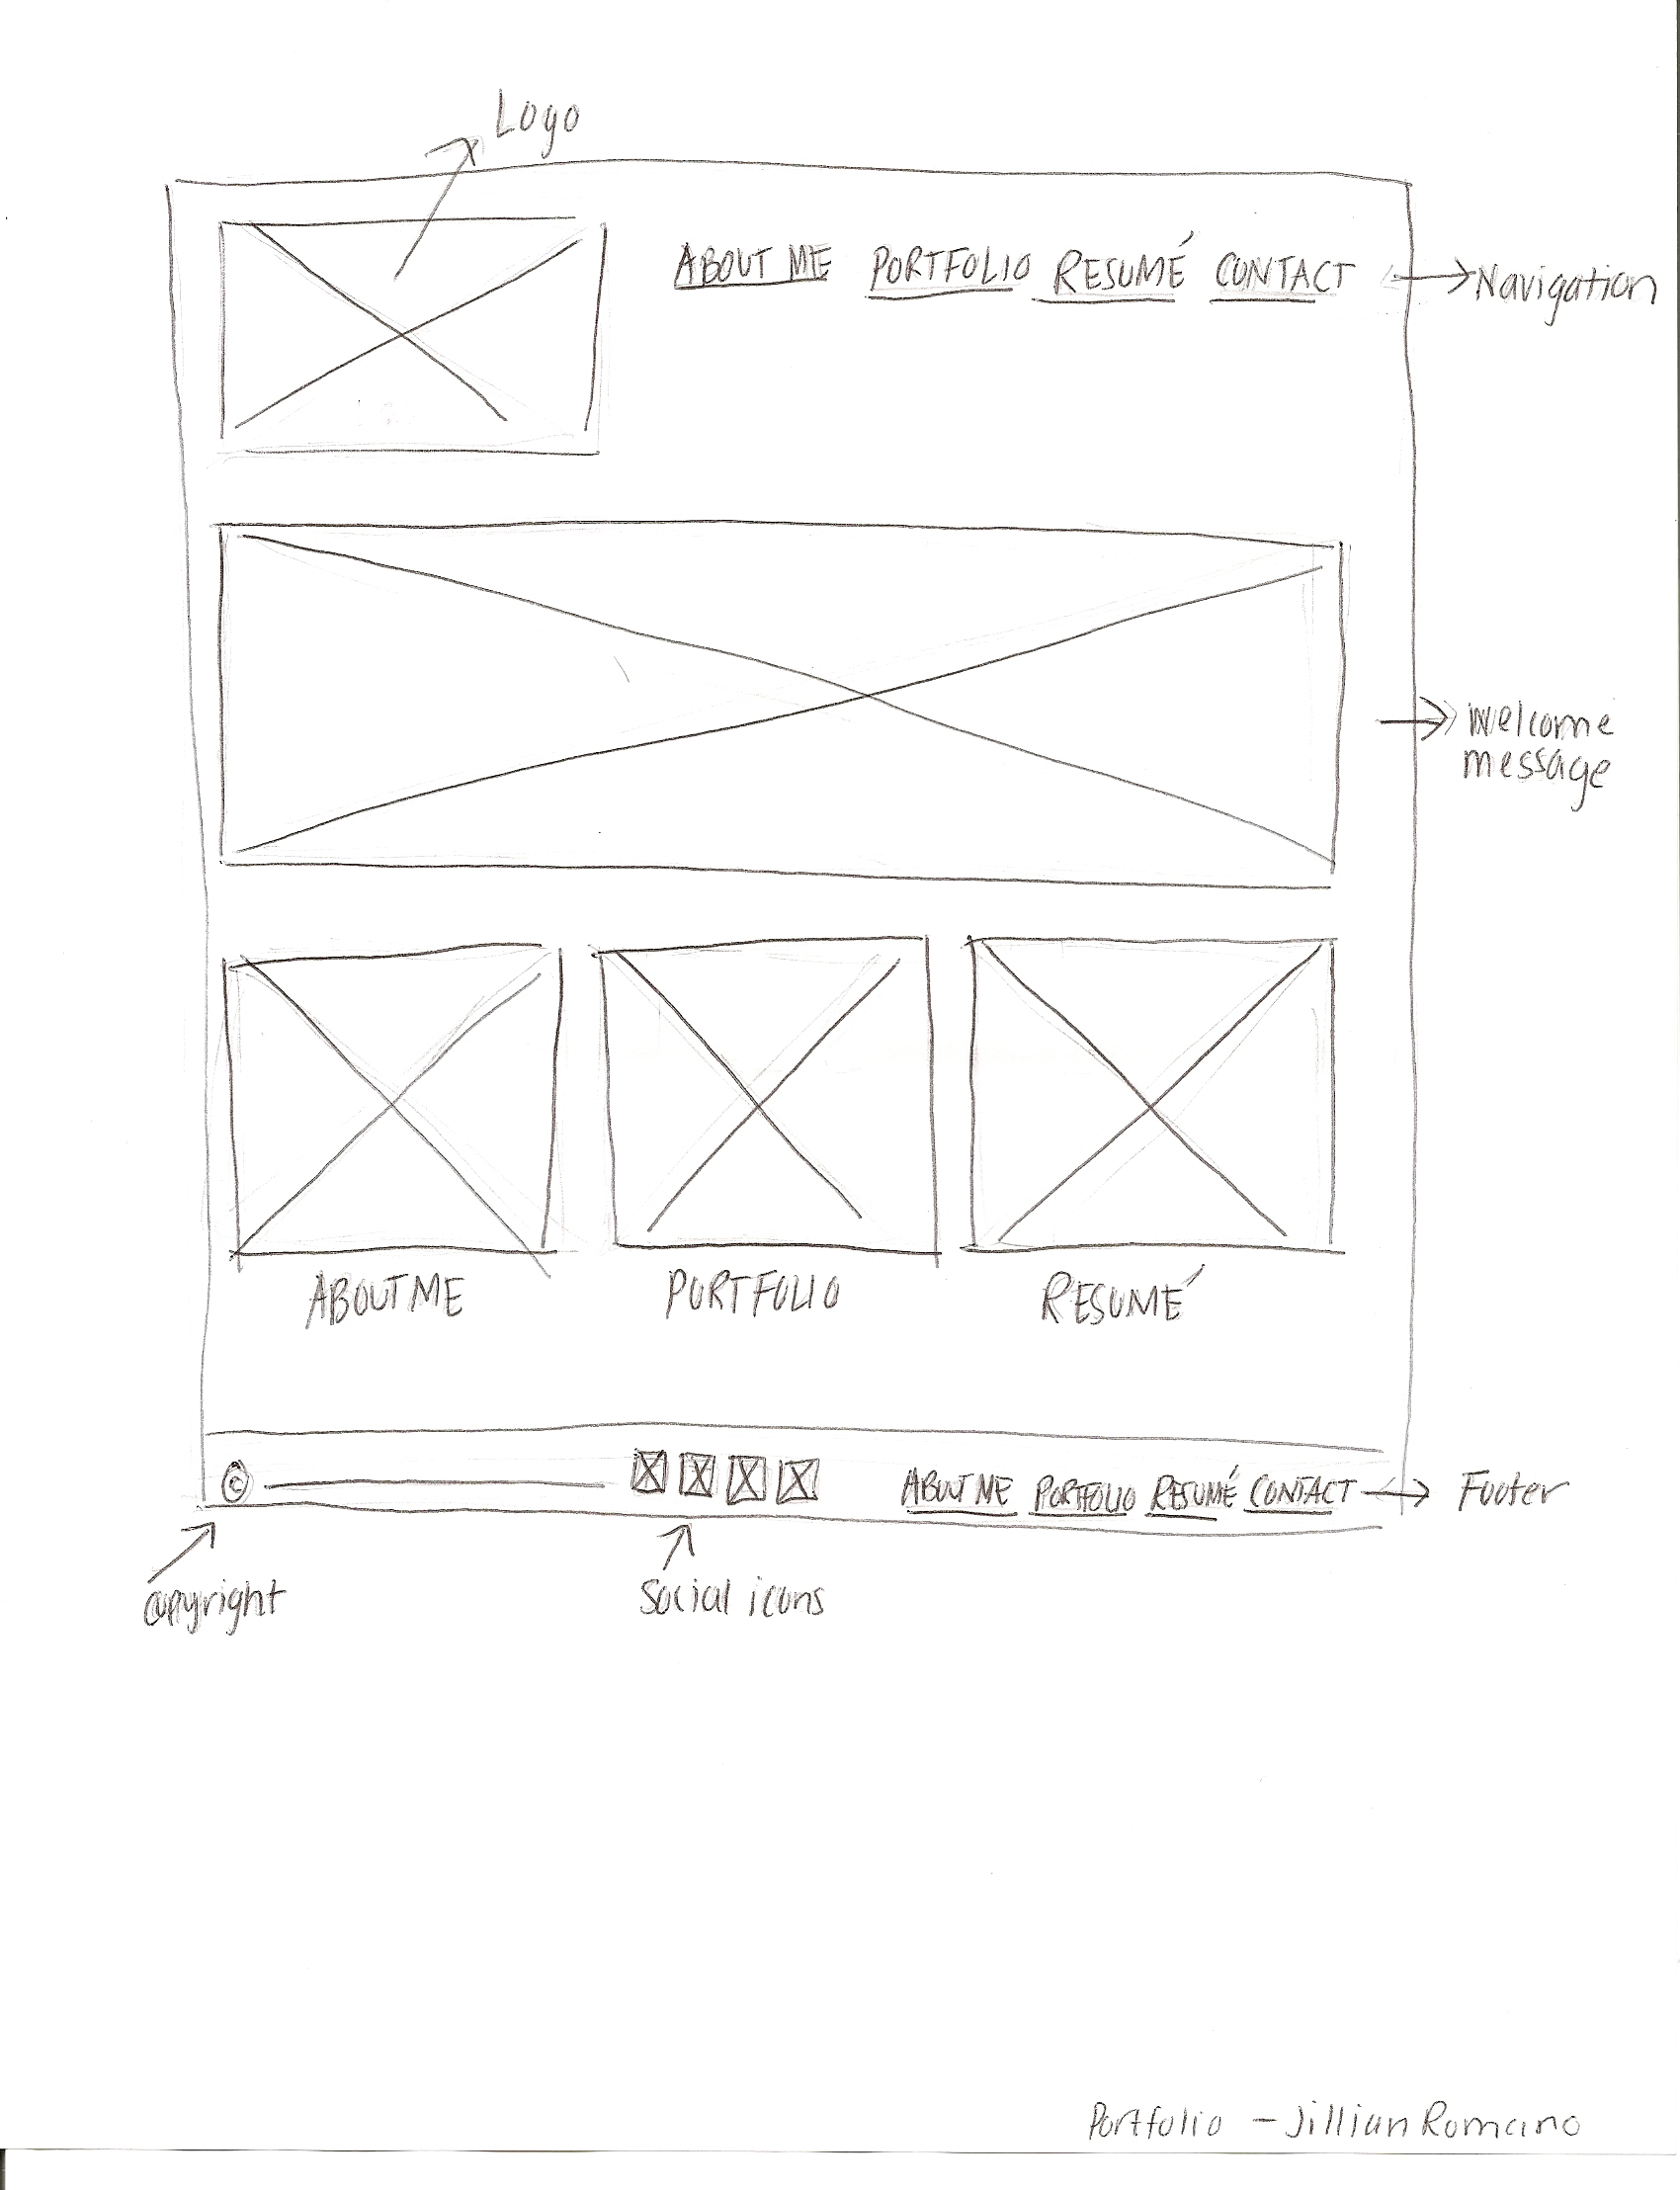 Logo
ABOUT ME PORTFOLIO RESUMÉ CONTACT
Navigation
Welcome
message
ABOUT ME
PORTFOLIO
RESUMÉ
©
ABOUT ME PORTFOLIO RESUMÉ CONTACT
Footer
copyright
Social icons
Portfolio - Jillian Romano